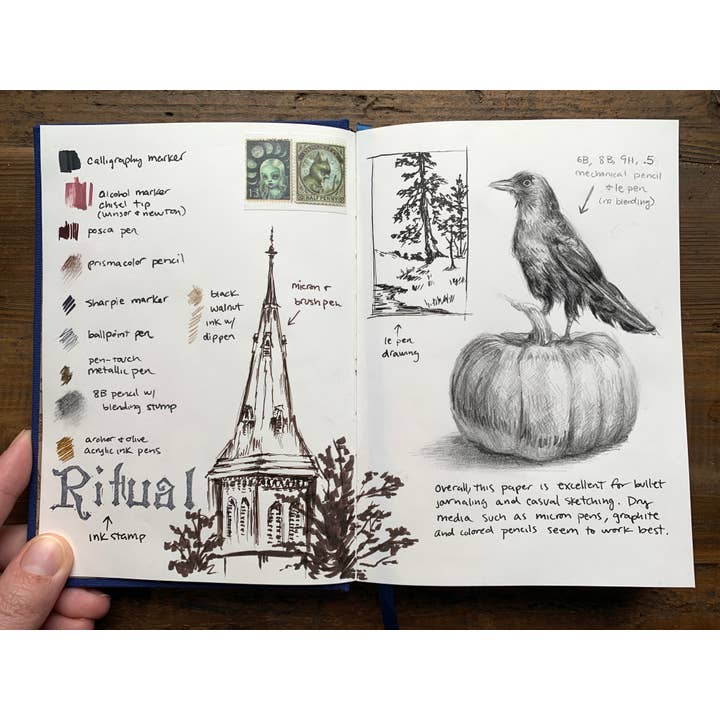 calligraphy marker
alcohol marker
chisel tip
(winsor & newton)
posca pen
prismacolor pencil
sharpie marker
ballpoint pen
pen-touch
metallic pen
8B pencil w/
blending stump
archer & olive
acrylic ink pens
black
walnut
ink w/
dip pen
micron &
brush pen
HALF PENNY
Ritual
ink stamp
le pen
drawing
6B, 8B, 9H, .5
mechanical pencil
& le pen
(no blending)
Overall, this paper is excellent for bullet
journaling and casual sketching. Dry
media such as micron pens, graphite
and colored pencils seem to work best.